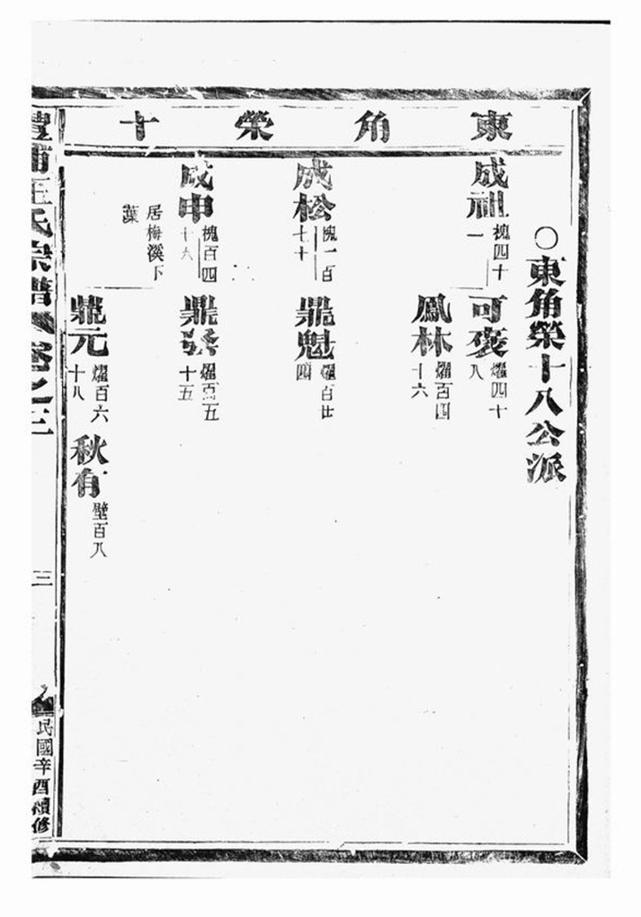 東角榮十
○東角榮十八公派
成祖
槐四十
一
可褒
耀四十
八
鳳林
耀百四
十六
成松
槐一百
七十
鼎魁
耀百廿
四
成申
槐百四
十六
居梅溪下
葉
鼎發
耀百五
十五
鼎元
耀百六
十八
秋有
壁百八
浦王氏宗譜 卷之三
三
民國辛酉續修